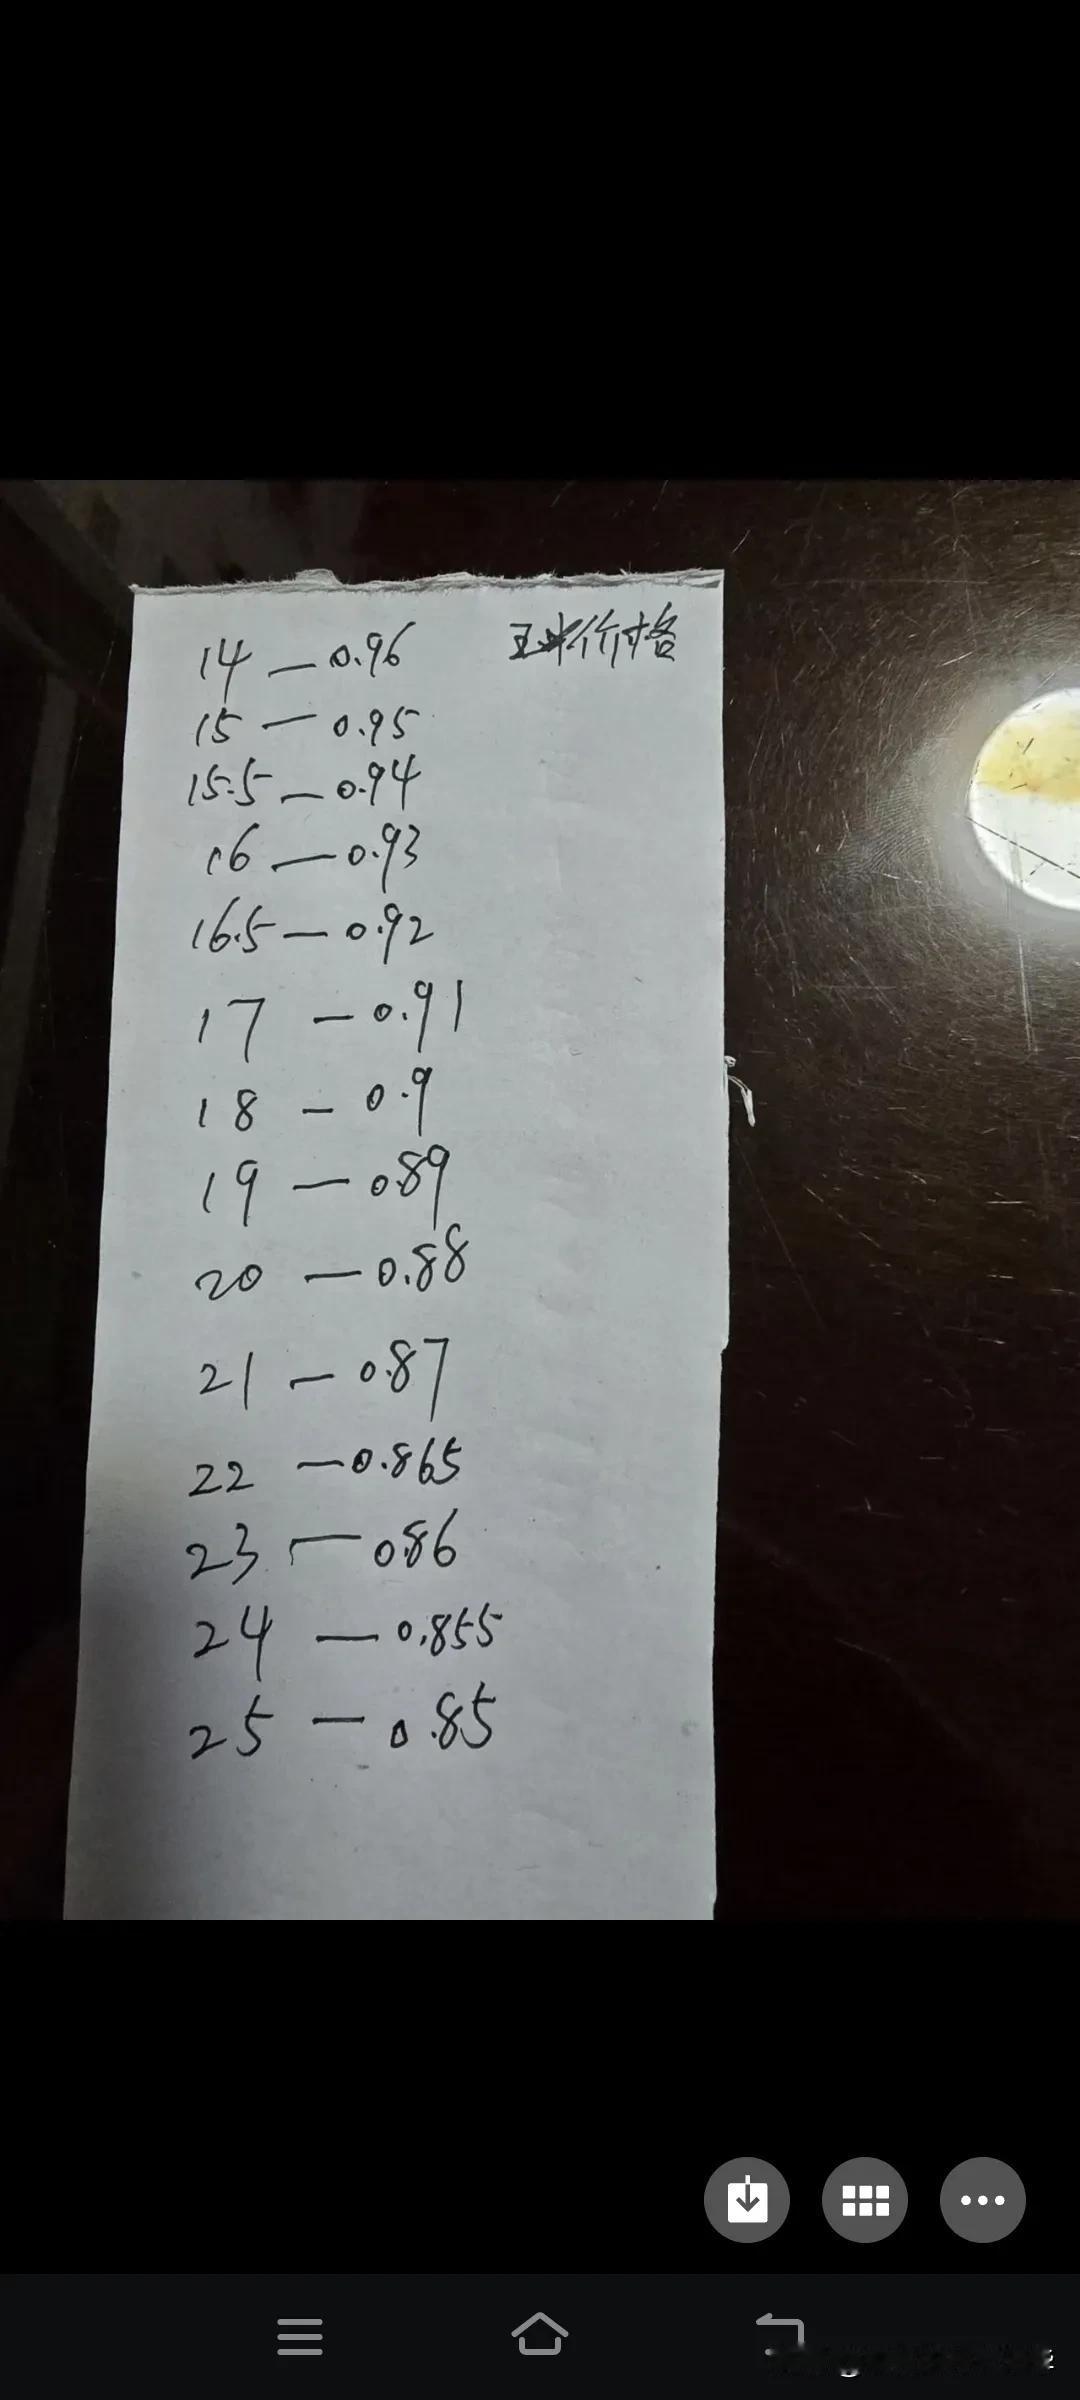 玉米价格
14 — 0.96
15 — 0.95
15.5 — 0.94
16 — 0.93
16.5 — 0.92
17 — 0.91
18 — 0.9
19 — 0.89
20 — 0.88
21 — 0.87
22 — 0.865
23 — 0.86
24 — 0.855
25 — 0.85